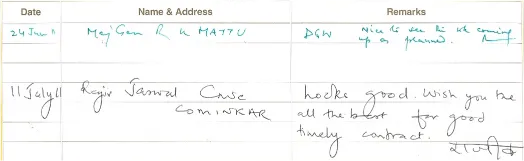 Date Name & Address Remarks
24 June 11 Maj Gen R K MATTU DGW Nice to see the wk coming
up as planned.
11 July 11 Rajiv Jaswal Cwse hooks good. Wish you the
COMINKAR all the best for good
timely contract.